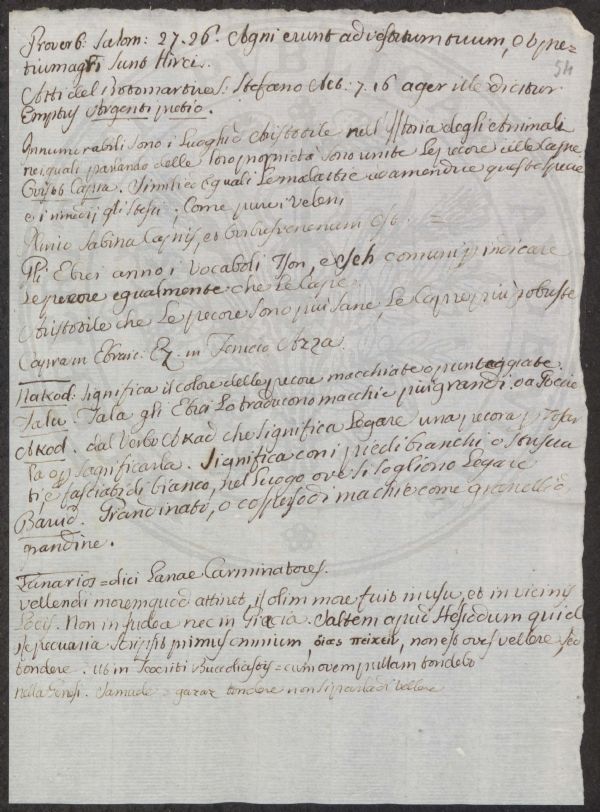 Proverb: Salom: 27.26. Agni erunt ad vestimentum tuum, & ad pre-
tium agri sunt Hirci.
54
Atti del Protomartire S: Stefano Act: 7. 16 ager ille dicitur
Emptus Argenti pretio.
Innumerabili sono i luoghi d'Aristotile nell'Istoria degli Animali
nei quali parlando delle loro proprietà sono unite le pecore colle Capre
Capra. Simili ed eguali le malattie in amendue queste specie
e i rimedij gli stessi, come pure i veleni
Plinio Sabina Capris, et ovibus venenum est. =
Gli Ebrei anno i vocaboli Tson, e Seh comuni p indicare
le pecore egualmente che le Capre
Aristotile che le pecore sono più sane, le Capre più robuste
Capra in Ebraic: Ez. in Fenicio Azza.
Nakod: significa il colore delle pecore macchiate o punteggiate.
Talu. Tala gli Ebrei lo traducono macchie più grandi, o a
Akod. dal verbo Akad che significa legare una pecora p tosar
la o p sagrificarla. Significa con i piedi bianchi o
ti, e fasciati di bianco, nel luogo ove si sogliono legare
Barud. Grandinato, o cosperso di machie come granelli di
grandine.
Lanarios = dici Lanae Carminatores.
vellendi morem quod attinet, is olim more fuit in usu, et in vicinis
locis. Non in Judea nec in Grecia. Saltem apud Hesiodum qui de
re pecuaria scripsit primus omnium, ὄϊας πείκειν, non est oves vellere, sed
tondere. Ut in Teocriti = cum ovem pullam tondebo
nella Genesi. = gazaz tondere non si parla di vellere